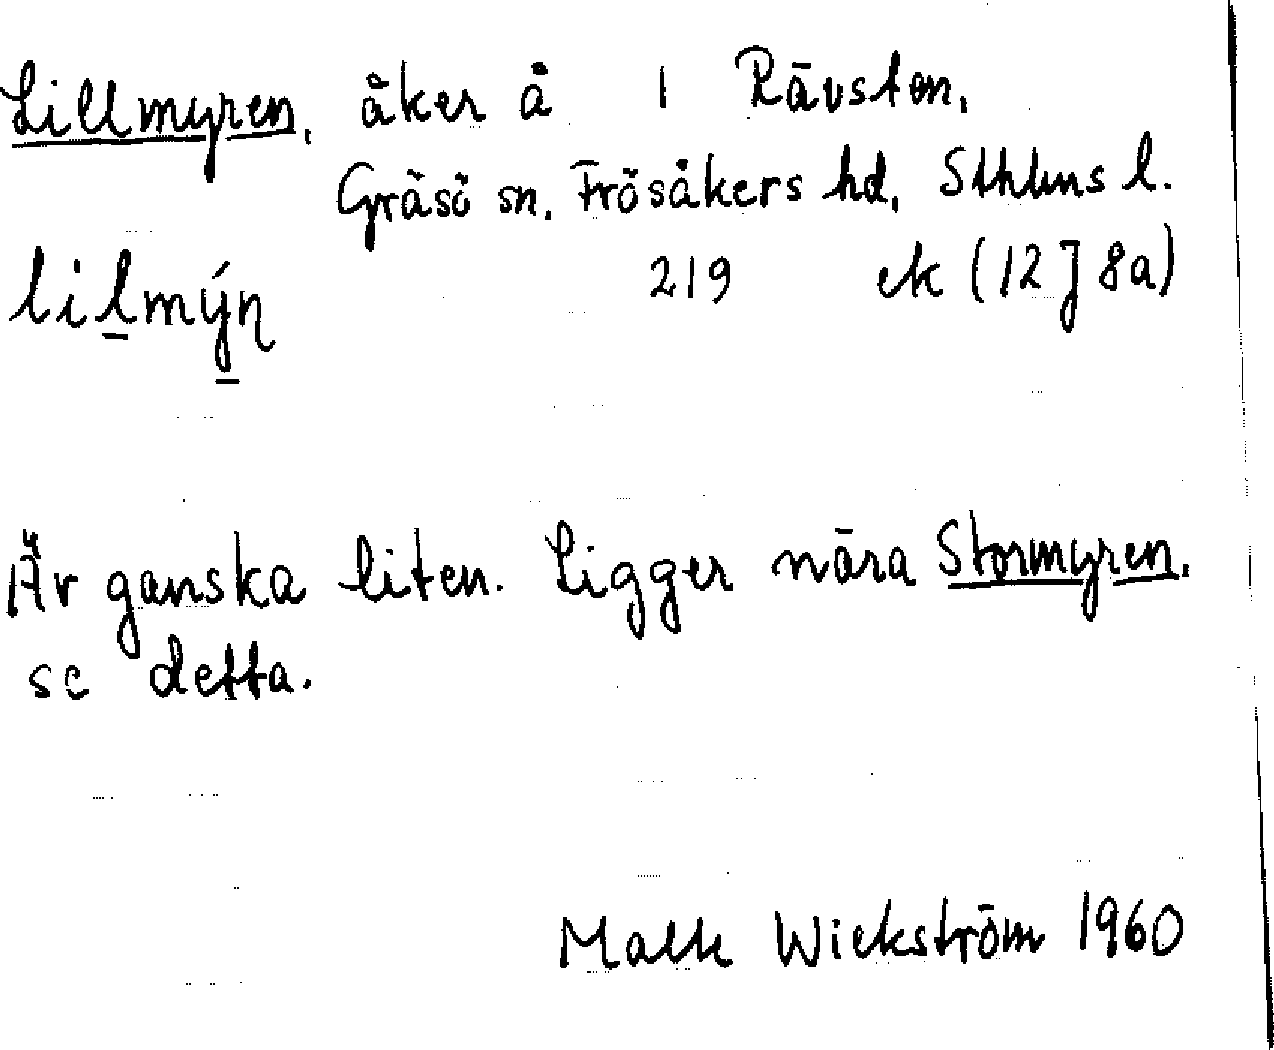 Lillmyren, åker å 1 Rävsten,
Gräsö sn. Frösåkers hd, Sthlms l.
lilmýn 219 ek (12 J 8a)
Är ganska liten. Ligger nära Stormyren,
se detta.
Wickström 1960